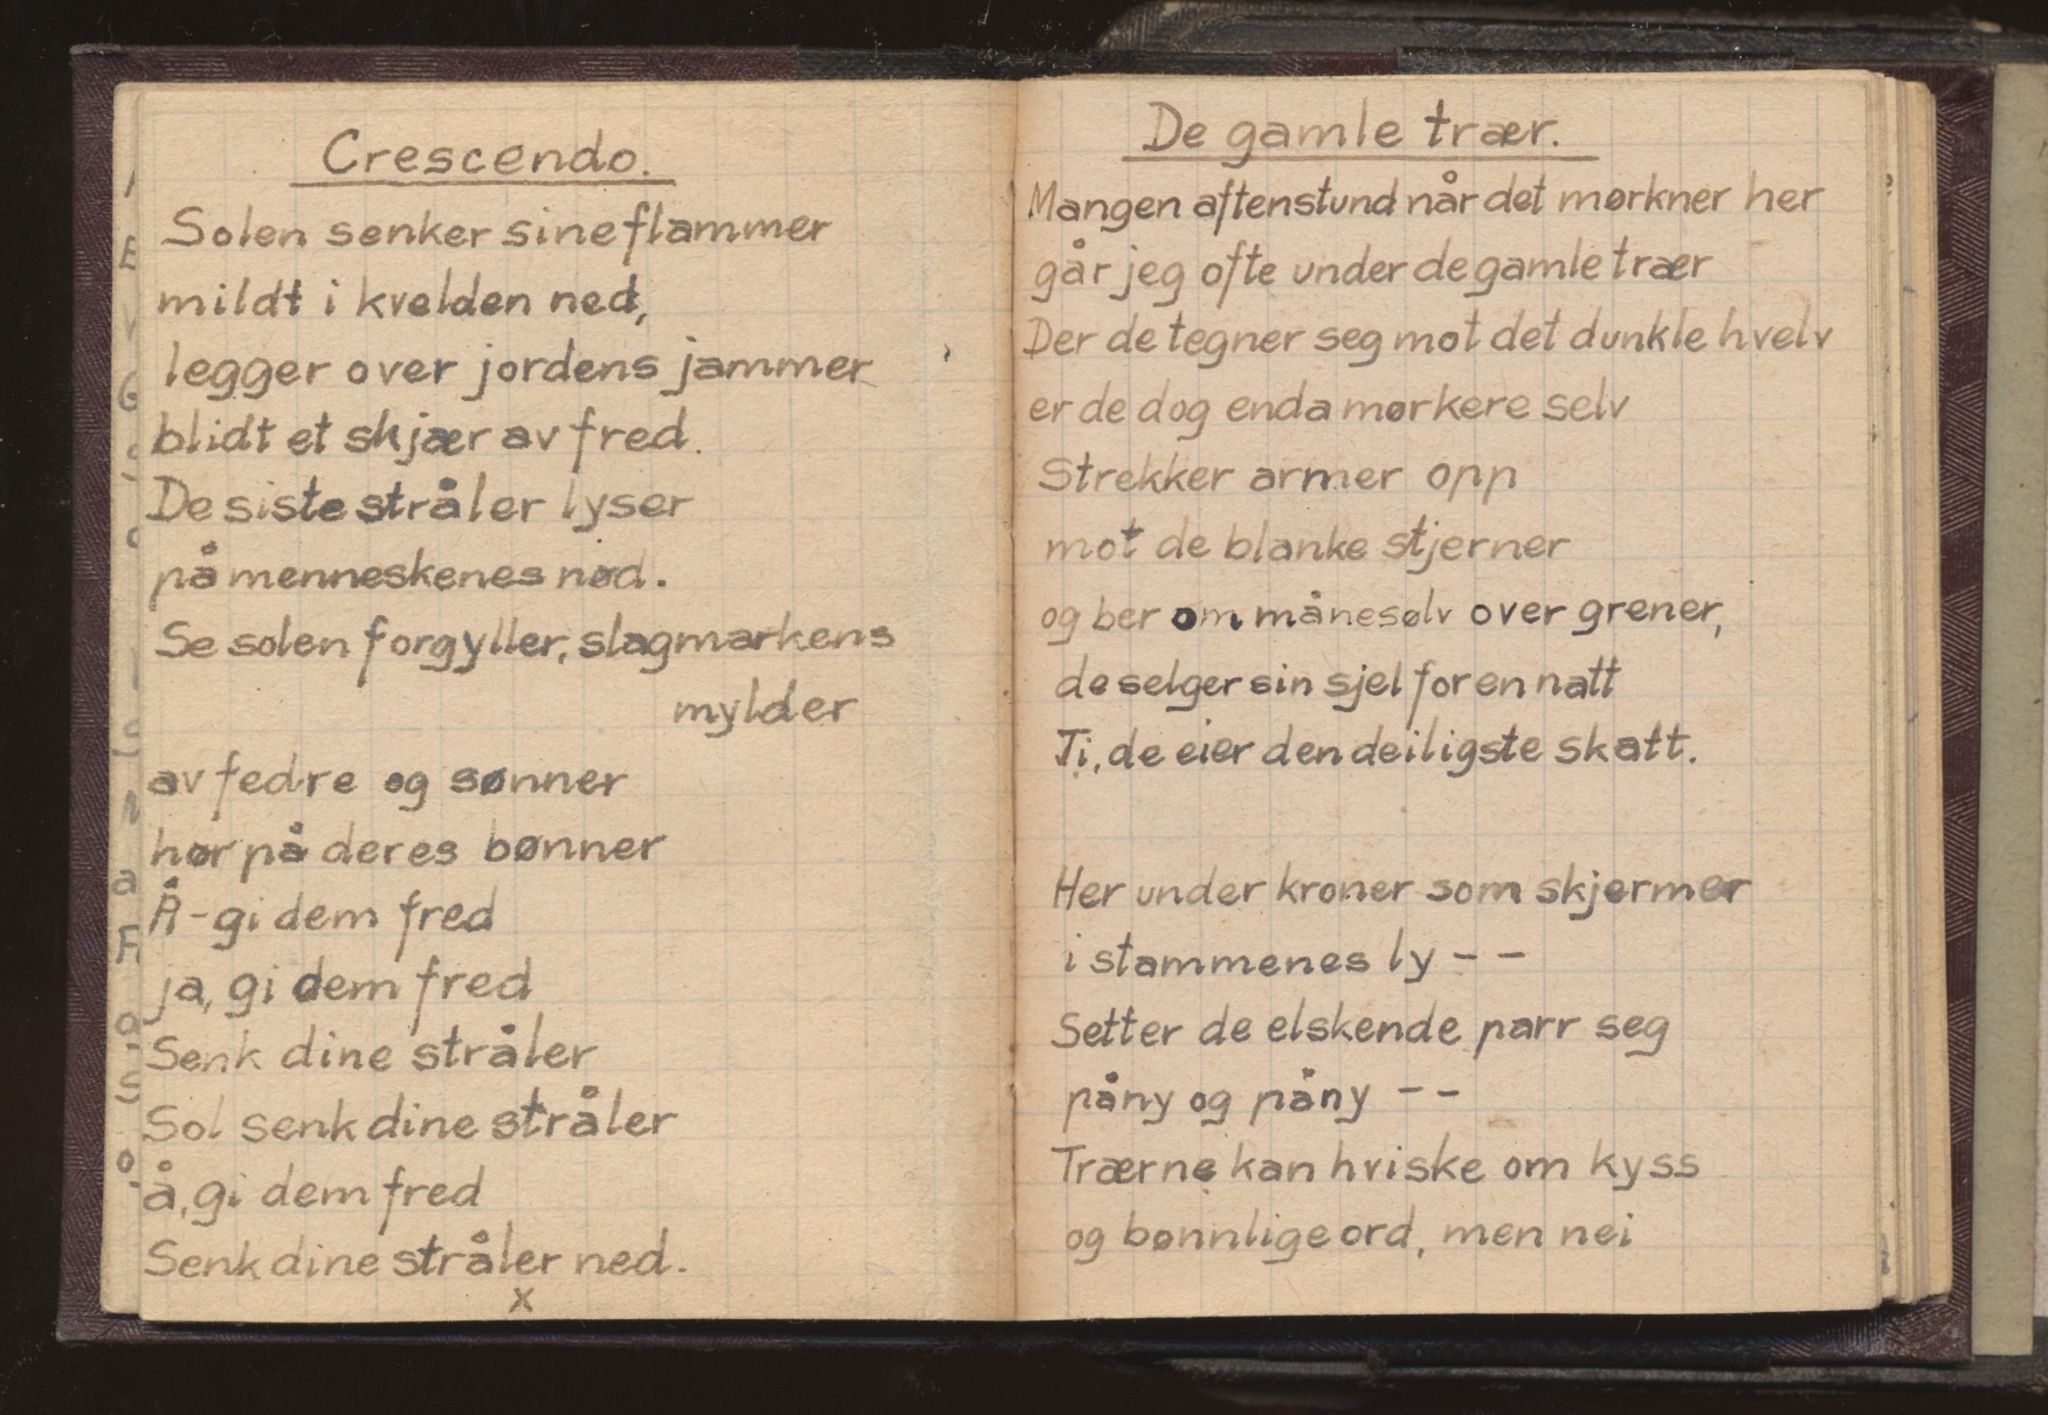 Crescendo.
Solen senker sine flammer
mildt i kvelden ned,
legger over jordens jammer
blidt et skjær av fred.
De siste stråler lyser
på menneskenes nød.
Se solen forgyller, slagmarkens
mylder
av fedre og sønner
hør på deres bønner
Å - gi dem fred
ja, gi dem fred
Senk dine stråler
Sol senk dine stråler
å, gi dem fred
Senk dine stråler ned.
x
De gamle trær.
Mangen aftenstund når det mørkner her
går jeg ofte under de gamle trær
Der de tegner seg mot det dunkle hvelv
er de dog enda mørkere selv
Strekker armer opp
mot de blanke stjerner
og ber om månesølv over grener,
de selger sin sjel for en natt
Ti, de eier den deiligste skatt.
Her under kroner som skjermer
i stammenes ly - -
Setter de elskende parr seg
påny og påny - -
Trærne kan hviske om kyss
og bønnlige ord, men nei